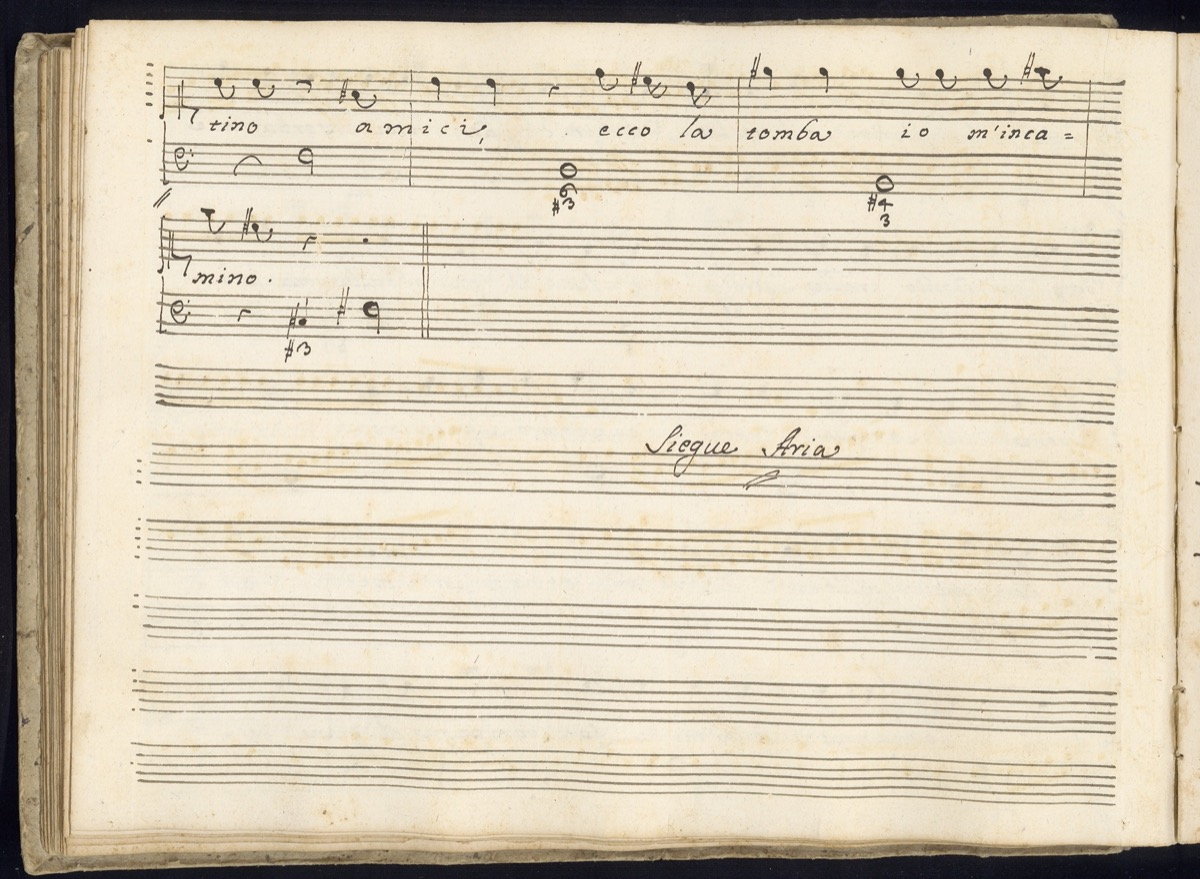 tino amici, ecco la tomba io m'inca=
6
#3
#4
3
mino.
#3
Siegue Aria